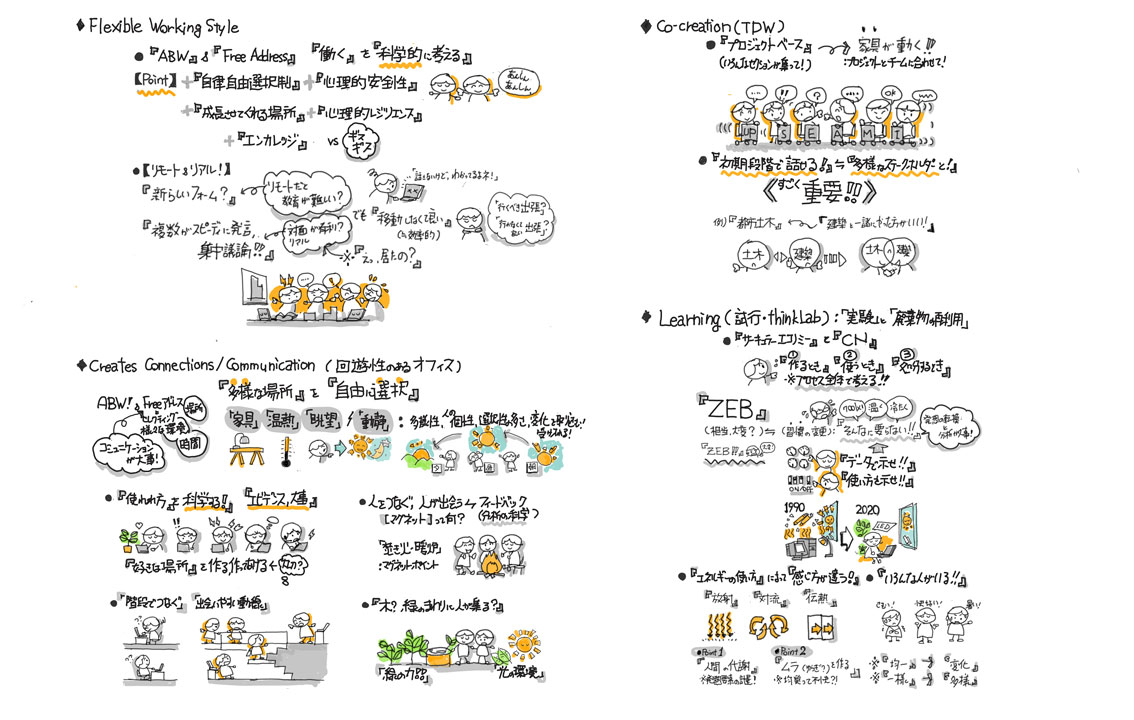 ◆Flexible Working Style
●『ABW』&『Free Address』 『働く』を『科学的に考える』
【Point】+『自律自由選択制』+『心理的安全性』
あんしん
あんしん
+『成長させてくれる場所』+『心理的レジリエンス』
+『エンカレッジ』 vs ギスギス
●【リモート&リアル!】
『新らしいフォーム?』
リモートだと
教育が難しい?
でも『移動しなくて良い』
(効率的)
「行くべき出張?」
『複数がスピーディに発言、
集中議論!!』
対面が有利?
リアル
※『えっ、居たの?』
◆Creates Connections/Communication (回遊性のあるオフィス)
『多様な場所』を『自由に選択』
ABW! & Free アドレス
場所
様々な環境
時間
コミュニケーション
が大事!
「家具」「温熱」「眺望」/「動静」
●『使われ方』を『科学する!』『エビデンス大事』
『好きな場所』を作る
●人をつなぐ、人が出会う
フィードバック
[マグネット]って何?
(分析の科学)
「焚き火・暖炉」
:マグネットポイント
●『階段でつなぐ』
●『木?緑のまわりに人が集る?』
「緑の力」
「光の環境」
◆Co-creation(TDW)
●『プロジェクトベース』
家具が動く!!
:プロジェクトとチームに合わせて!
OK
UPSEAMI
●『初期段階で話せる!』≒『多様なステークホルダーと!』
《すごく重要!!!》
例)『都市土木』
「建築と一緒にやった方がいい!」
土木
建築
土木
建築
◆Learning(試行・thinkLab):「実験」と「廃棄物の再利用」
●『サーキュラーエコノミー』と『CN』
①『作るとき』②『使うとき』③『処分するとき』
※『プロセス全体で考える!!』
『ZEB』
(相当、大変?)⇆(習慣の変更):そんなに要らない!!
温く
冷たく
発想の転換
&分析が大事!
『データで示せ!!』
『使い方も示せ!!』
ON/OFF
1990
2020
LED
●『エネルギーの使い方』によって『感じ方が違う?』
●『いろんな人がいる!!』
『放射』
『対流』
『伝熱』
暑い!
●Point 1
『人間の代謝』
●Point 2
『ムラ(ゆらぎ)を作る』
※均質って不快?!
※『均一』→『変化』
※『一様』→『多様』